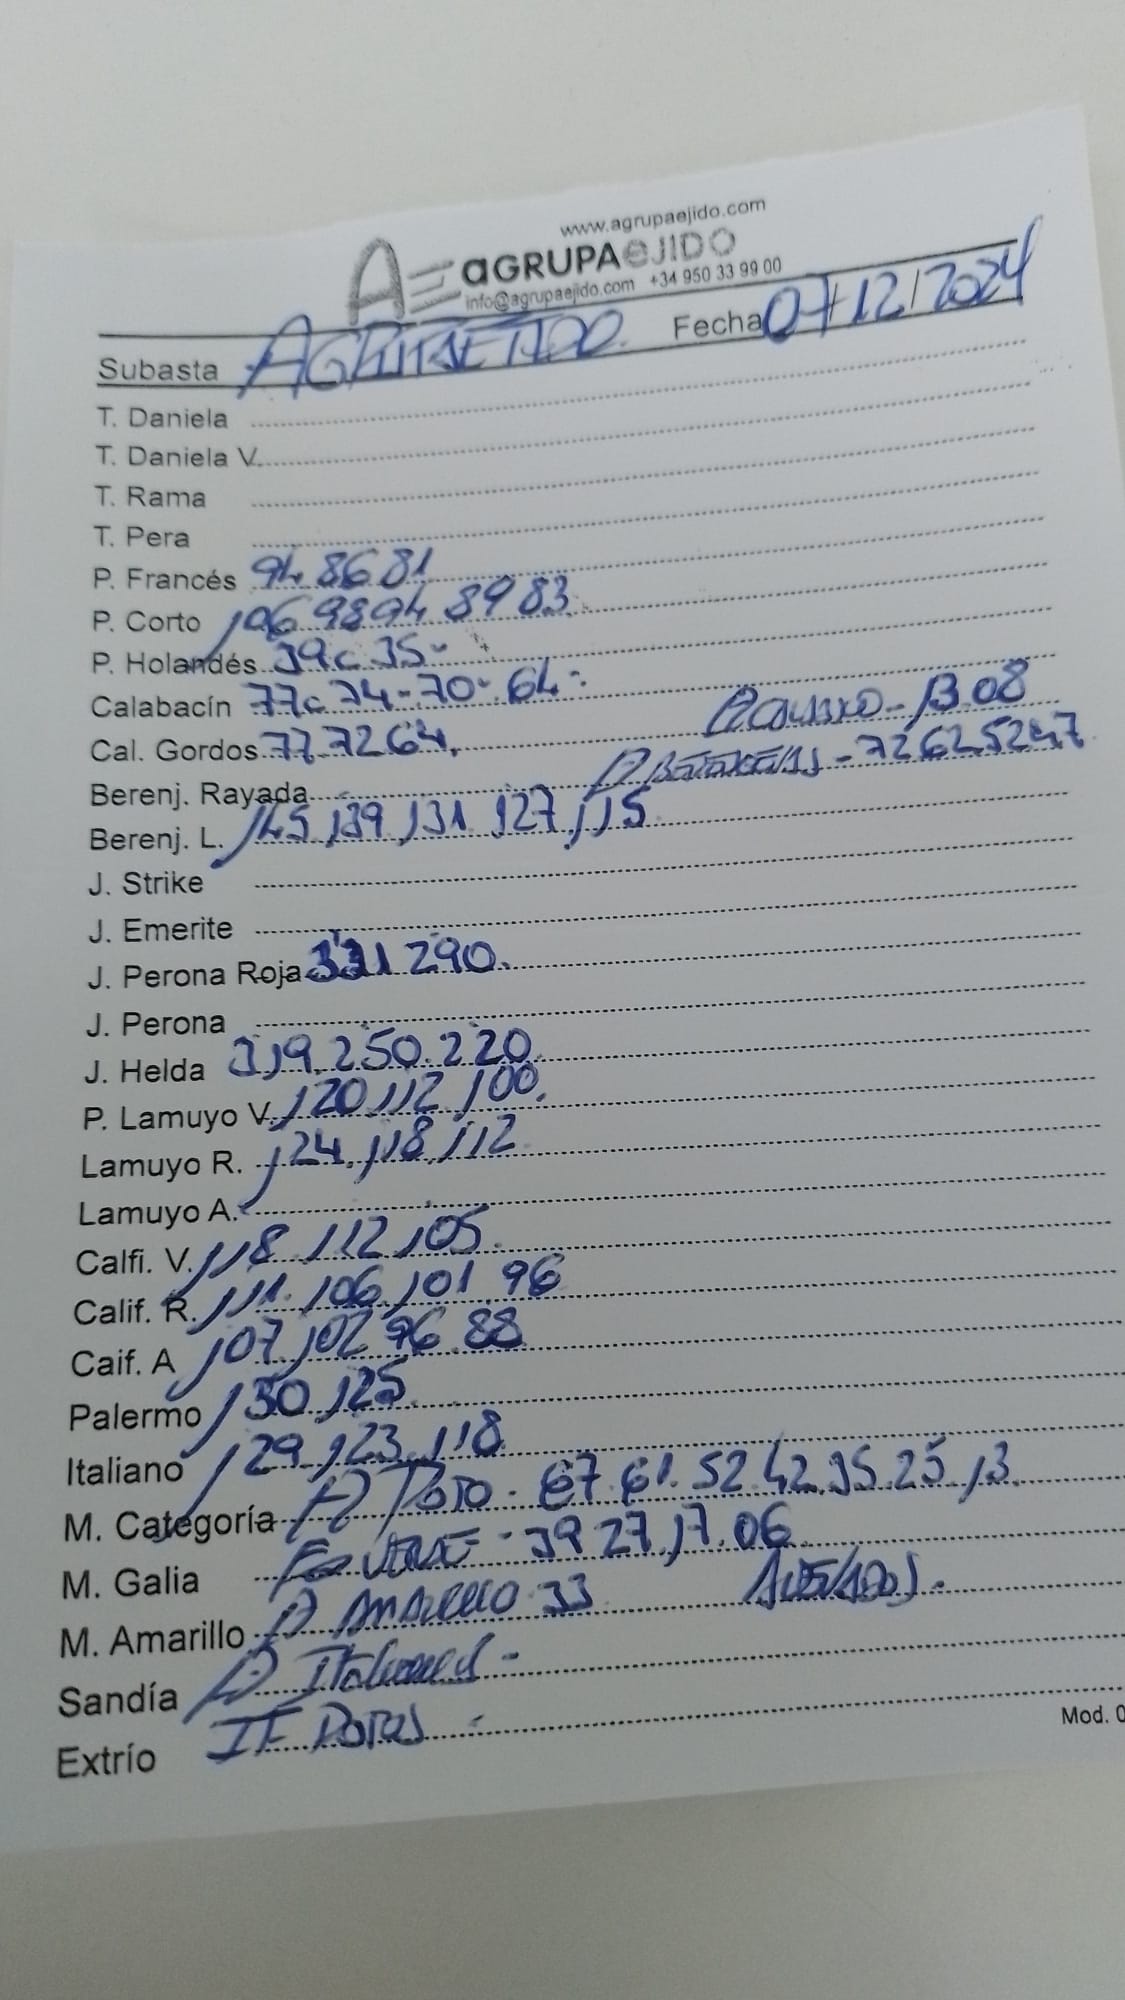 www.agrupaejido.com
AE aGRUPAeJIDO
info@agrupaejido.com +34 950 33 99 00
Subasta AGRUPAEJIDO. Fecha 07/12/2024
T. Daniela
T. Daniela V.
T. Rama
T. Pera
P. Francés 94 86 81
P. Corto 106 98 94 89 83
P. Holandés 39 35
Calabacín 77 74-70 64
Cal. Gordos 77 72 64 13.08
Berenj. Rayada - 72 62 52 47
Berenj. L. 145 139 131 127 115
J. Strike
J. Emerite
J. Perona Roja 331 290.
J. Perona
J. Helda 319.250.220
P. Lamuyo V. 120 112 100.
Lamuyo R. 124. 118 112
Lamuyo A.
Calfi. V. 118 112 105.
Calif. R. 111. 106 101 96
Caif. A 107 102 96 88
Palermo 130 125
Italiano 129 123 118
M. Categoría P. PADRÓN - 67 61. 52 42 35 25 13
M. Galia VERDE - 39 27 17. 06
M. Amarillo P. AMARILLO 33
Sandía P. Italiano
Extrío
Mod. 0